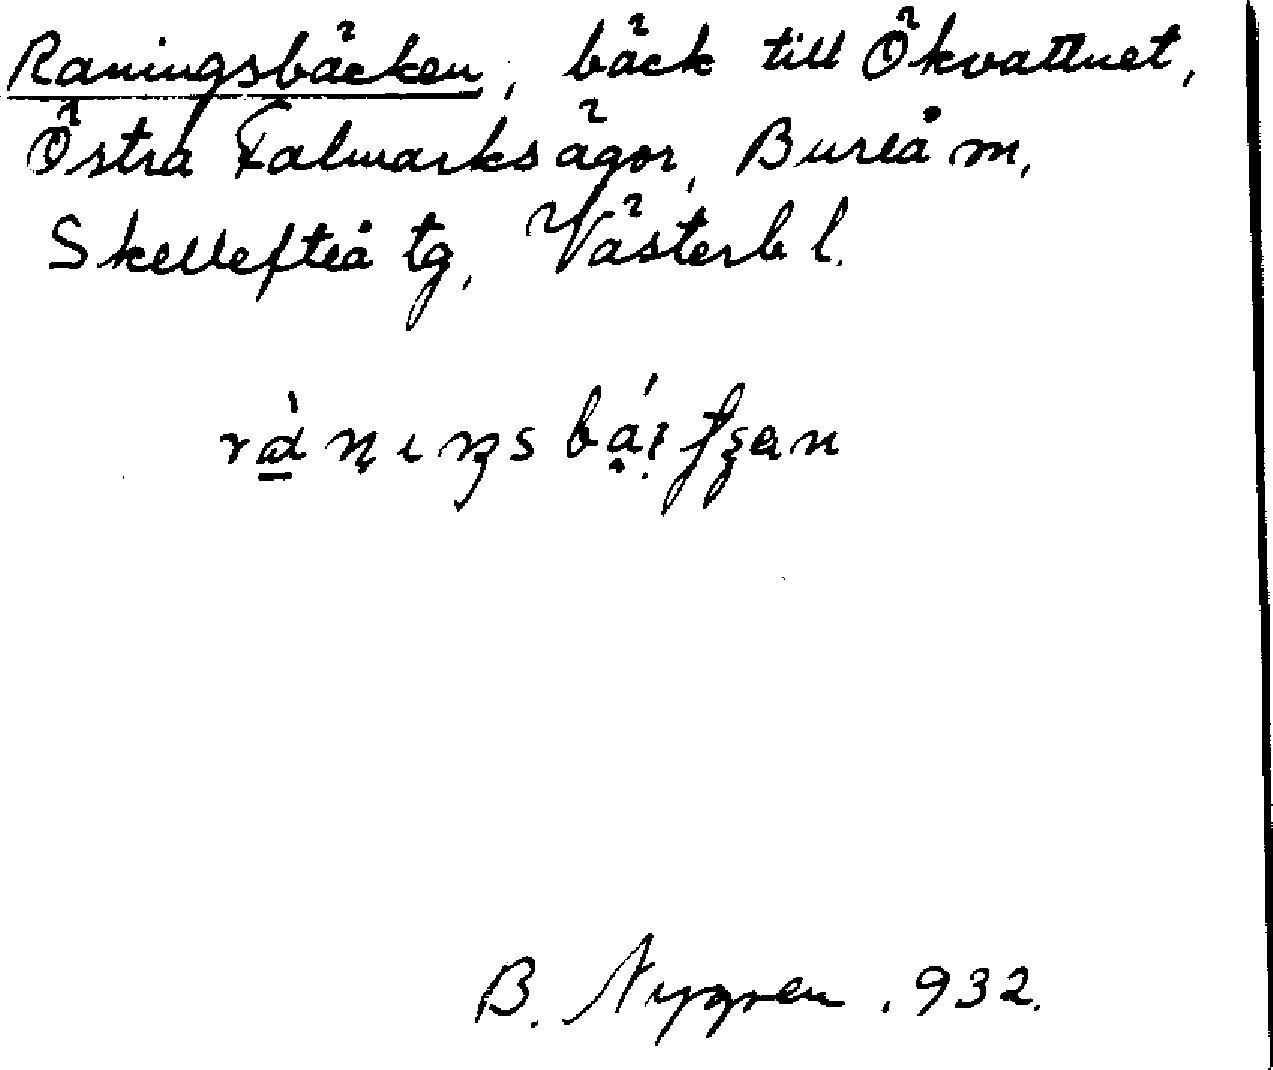 Raningsbäcken, bäck till Ökvattnet,
Östra Falmarks ägor, Bureå m,
Skellefteå tg, Västerb l.
B. Nygren . 932.